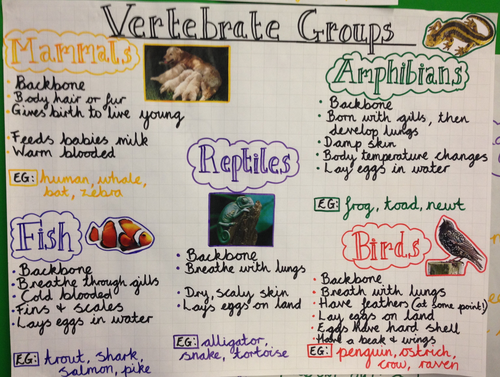 Vertebrate Groups
Mammals
• Backbone
• Body hair or fur
• Gives birth to live young
Feeds babies milk
• Warm blooded
EG: human, whale,
bat, zebra
Amphibians
• Backbone
• Born with gills, then
develop lungs
• Damp skin
• Body temperature changes
• Lay eggs in water
EG: frog, toad, newt
Reptiles
• Backbone
• Breathe with lungs
• Dry, scaly skin
• Lays eggs on land
EG: alligator,
snake, tortoise
Fish
• Backbone
• Breathe through gills
• Cold blooded
• Fins & scales
• Lays eggs in water
EG: trout, shark,
salmon, pike
Birds
• Backbone
• Breath with lungs
• Have feathers (at some point!)
• Lay eggs on land
• Eggs have hard shell
• Have a beak & wings
EG: penguin, ostrich,
crow, raven